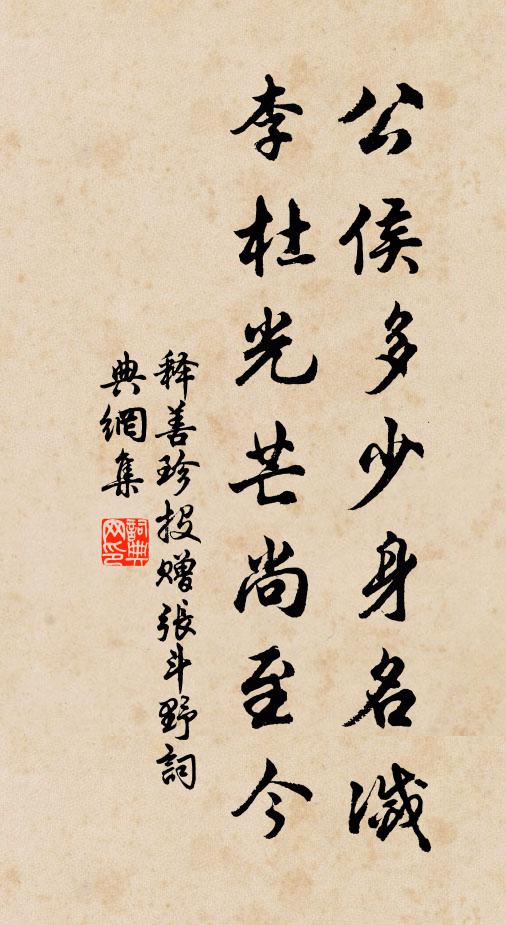 公侯多少身名滅
李杜光芒尚至今
释善珍投赠張斗野詞
典網集
詞典网印